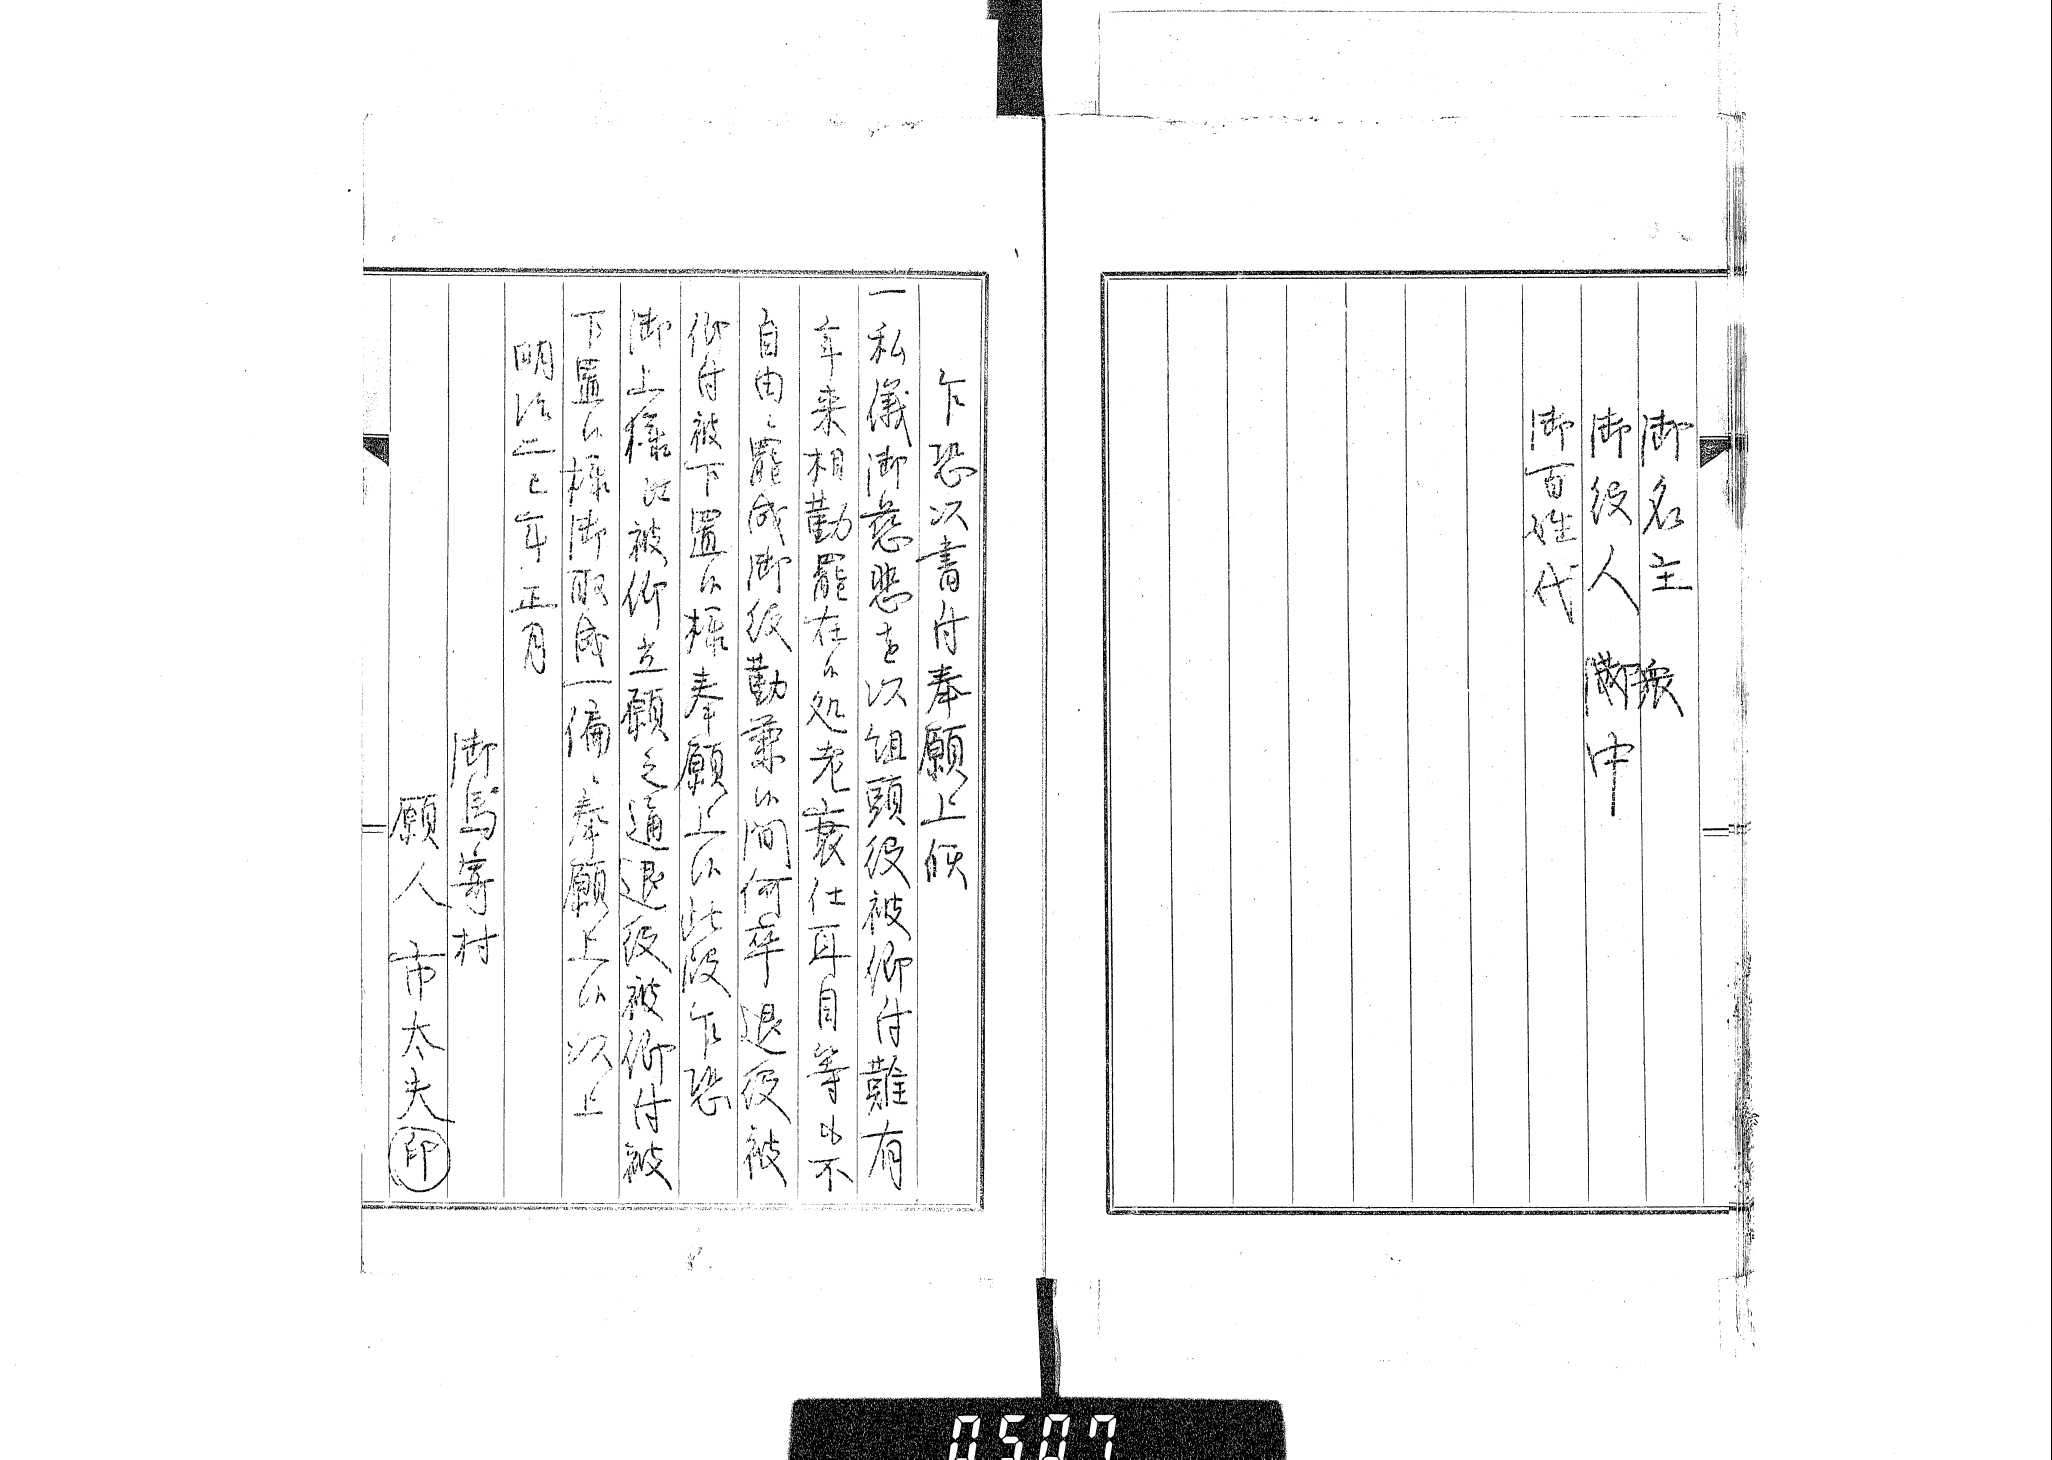 御名主
御役人　衆中
御百姓代
乍恐以書付奉願上候
一私儀御慈悲を以組頭役被仰付難有
年来相勤罷在候処老衰仕耳目等も不
自由ニ罷成御役勤兼候間何卒退役被
仰付被下置候様奉願上候此段乍恐
御上様江被仰立願之通退役被仰付被
下置候様御取成一偏ニ奉願上候以上
明治二巳年正月
御馬寄村
願人　市太夫㊞
0507